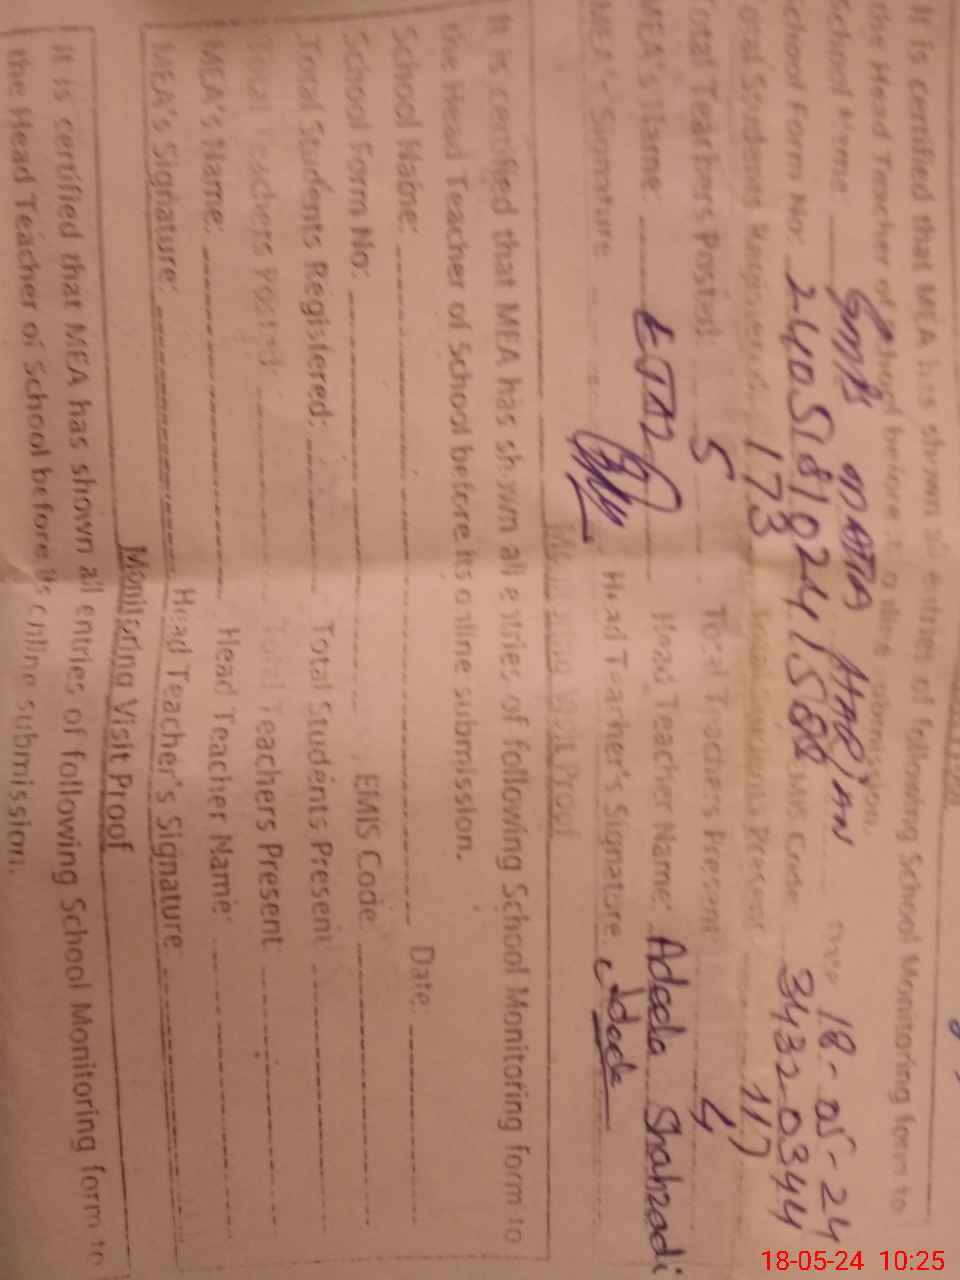 It is certified that MEA has shown all entries of following School Monitoring form to
the Head Teacher of School before its online submission.
School Name: GMPS Date: 18-05-24
School Form No: EMIS Code: 34320344
Total Students Registered: 173 Total Students Present: 117
Total Teachers Posted: 5 Total Teachers Present: 4
MEA's Name: Head Teacher Name: Adeela Shahzadi
MEA's Signature Head Teacher's Signature: Adeela
Monitoring Visit Proof
It is certified that MEA has shown all entries of following School Monitoring form to
the Head Teacher of School before its online submission.
School Name: Date:
School Form No: EMIS Code:
Total Students Registered: Total Students Present:
Total Teachers Posted: Total Teachers Present
MEA's Name: Head Teacher Name:
MEA's Signature: Head Teacher's Signature:
Monitoring Visit Proof
It is certified that MEA has shown all entries of following School Monitoring form to
the Head Teacher of School before its online submission.
18-05-24 10:25